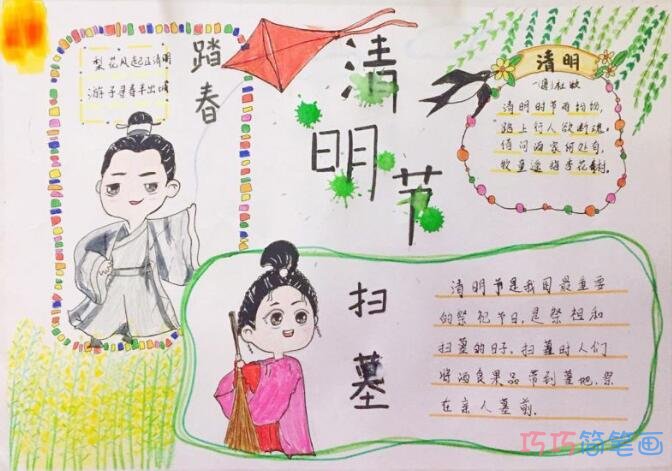 梨花风起正清明
游子寻春半出城
踏春
清明节
清明
(唐)杜牧
清明时节雨纷纷,
路上行人欲断魂。
借问酒家何处有,
牧童遥指杏花村。
扫墓
清明节是我国最重要
的祭祀节日,是祭祖和
扫墓的日子。扫墓时人们
将酒食果品带到墓地,祭
在亲人墓前.
巧巧简笔画